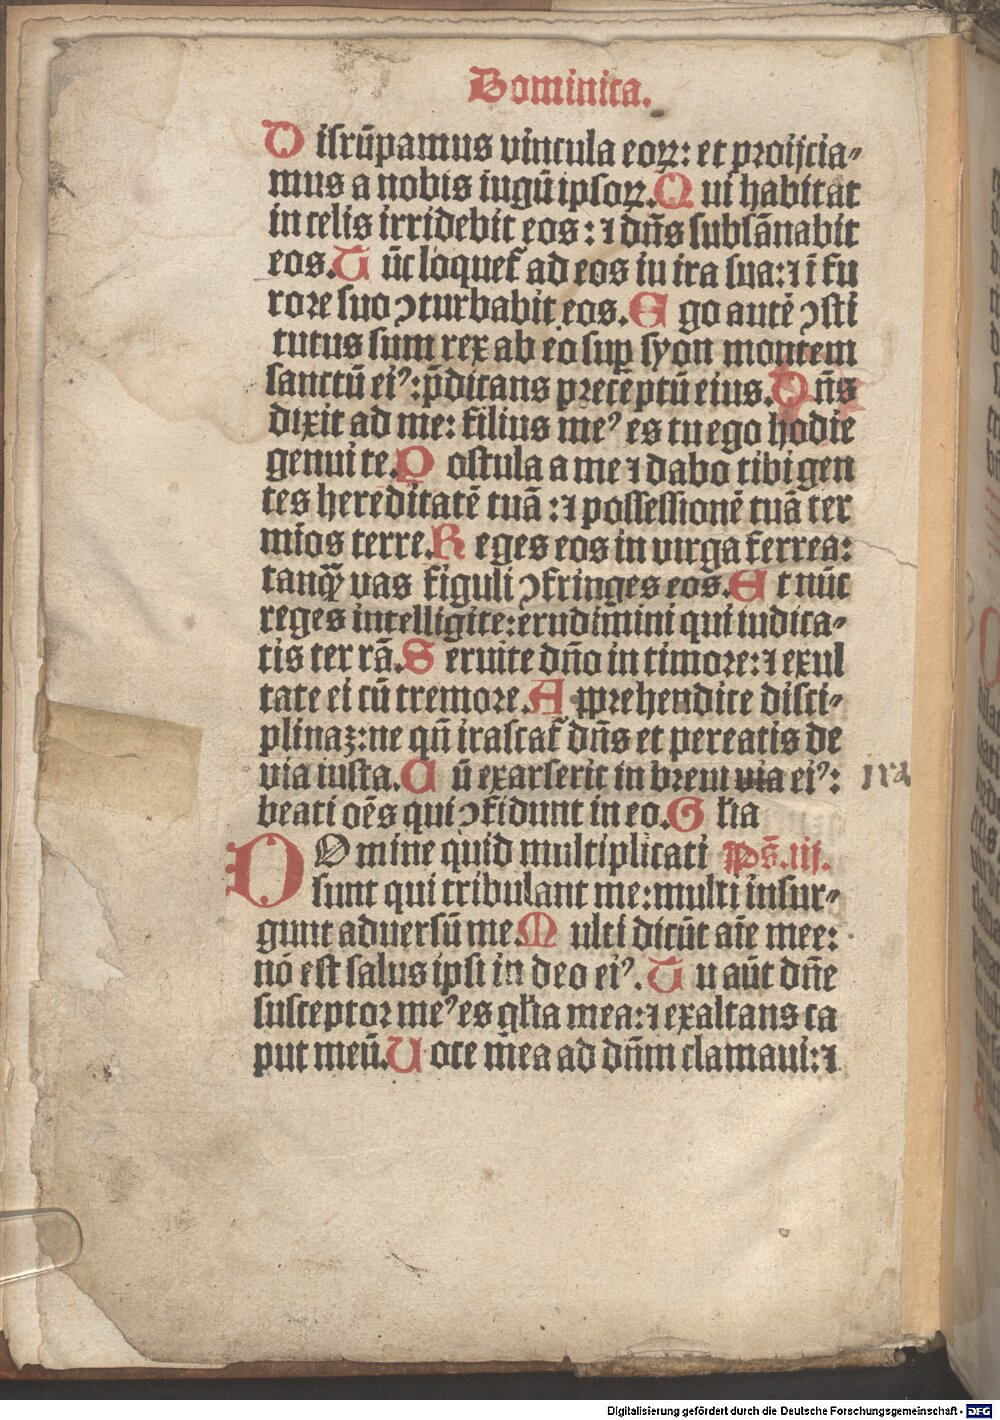 Dominica.
Disrūpamus vincula eoꝝ: et proijcia⸗
mus a nobis iugū ipsoꝝ. Qui habitat
in celis irridebit eos: ⁊ dn̄s subsānabit
eos. Tūc loquet᷑ ad eos in ira sua: ⁊ ī fu
rore suo ↄturbabit eos. Ego autē ↄsti
tutus sum rex ab eo suꝑ syon montem
sanctū eiꝰ: p̄dicans preceptū eius. Dn̄s
dixit ad me: filius meꝰ es tu ego hodie
genui te. Postula a me ⁊ dabo tibi gen
tes hereditatē tuā: ⁊ possessionē tuā ter
mīos terre. Reges eos in virga ferrea:
tanqꝫ vas figuli ↄfringes eos. Et nūc
reges intelligite: erudimini qui iudica⸗
tis ter rā. Seruite dn̄o in timore: ⁊ exul
tate ei cū tremore. Apprehendite disci⸗
plinaꝫ: ne qn̄ irascat᷑ dn̄s et pereatis de
via iusta. Cū exarserit in breui via eiꝰ: ira
beati oēs qui ↄfidunt in eo. Gl'ia
DOmine quid multiplicati Ps̄. iij.
sunt qui tribulant me: multi insur⸗
gunt aduersū me. Multi dicūt aīe mee:
nō est salus ipsi in deo eiꝰ. Tu aūt dn̄e
susceptor meꝰ es gl'ia mea: ⁊ exaltans ca
put meū. Uoce mea ad dn̄m clamaui: ⁊
Digitalisierung gefördert durch die Deutsche Forschungsgemeinschaft - DFG